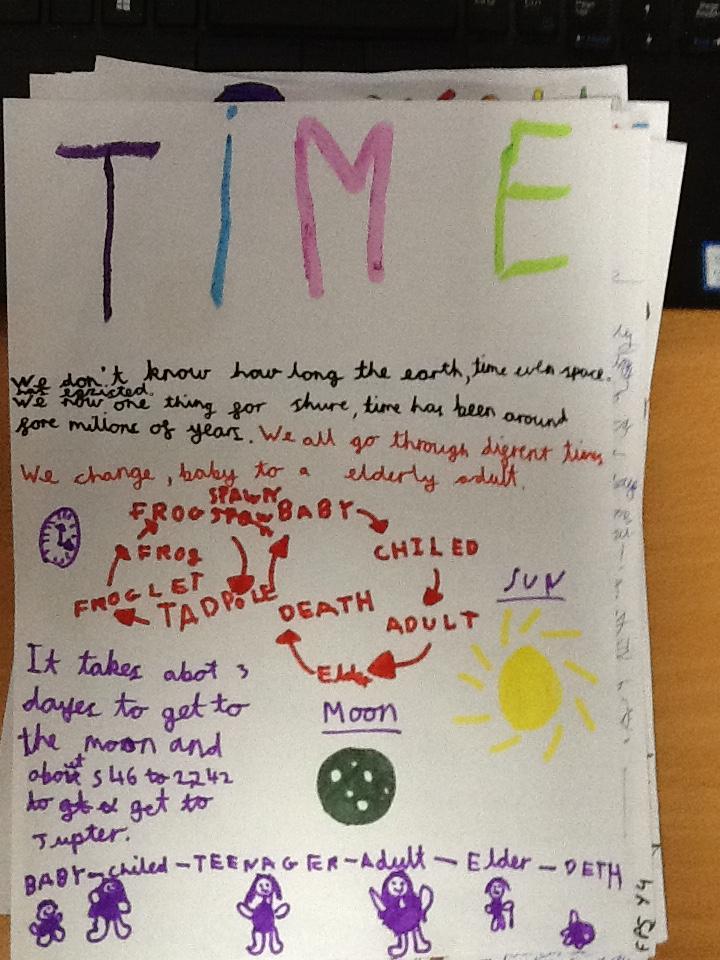 TiME
We don't know how long the earth, time even space.
hat egzisted.
We now one thing for shure, time has been around
fore milions of years. We all go through digrent times
We change, baby to a elderly adult.
SPAWN
FROG SPAW BABY
FROG
CHILED
FROGLET
TADPOLE
DEATH
ADULT
Elder
SUN
It takes abot 3
dayes to get to
the moon and
about 546 to 2242
to get to
Jupter.
Moon
BABY - chiled - TEENAGER - Adult - Elder - DETH